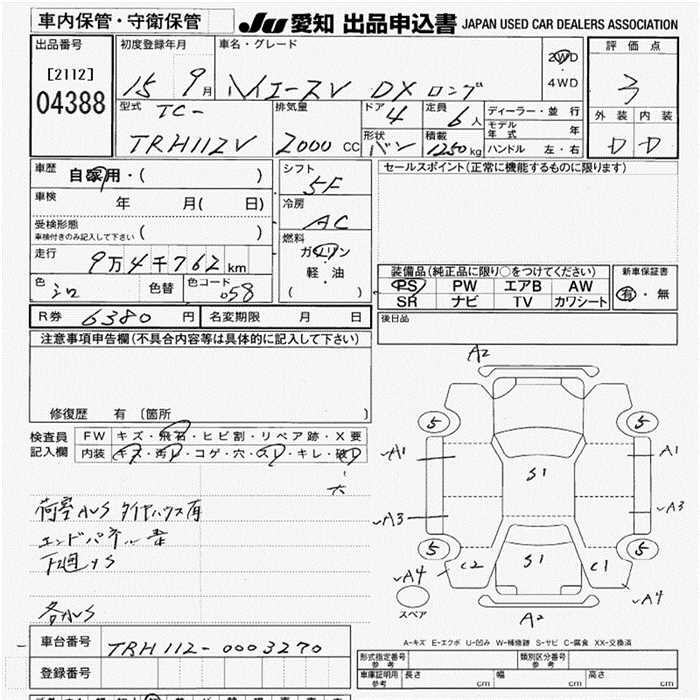 車内保管・守衛保管
JU 愛知 出品申込書 JAPAN USED CAR DEALERS ASSOCIATION
出品番号
[2112]
04388
初度登録年月
15 9月
車名・グレード
ハイエースV DX ロング
2WD
・
4WD
評価点
3
外装 内装
D D
型式
TC-
TRH112V
排気量
2000 CC
ドア
4
定員
6人
形状
バン
積載
1250kg
ディーラー・並行
モデル年式 年
ハンドル 左・右
車歴
自家用・( )
車検
年 月( 日)
受検形態
車検付きのみ記入して下さい ( )
走行
9万4千762km
色
シロ
色替
色コード
058
シフト
5F
冷房
AC
燃料
ガソリン
・
軽・油
( )
セールスポイント(正常に機能するものに限ります)
装備品(純正品に限り○をつけてください)
PS PW エアB AW
SR ナビ TV カワシート
新車保証書
有・無
R券 6380 円
名変期限 月 日
後日品
注意事項申告欄(不具合内容等は具体的に記入して下さい)
修復歴 有 〔箇所 〕
検査員
記入欄
FW キズ・飛石・ヒビ割・リペア跡・X要
内装 キズ・汚レ・コゲ・穴・スレ・キレ・破レ
大
荷室
エンドパネル
下廻
A2
5 5
A1 A1
S1
A3 A3
5 5
A4 C2 S1 C1 A4
スペア
A2
A-キズ E-エクボ U-凹み W-補修跡 S-サビ C-腐食 XX-交換済
車台番号
TRH112-0003270
登録番号
形式指定番号
参考
類別区分番号
参考
車庫証明用
参考
長さ cm 幅 cm 高さ cm